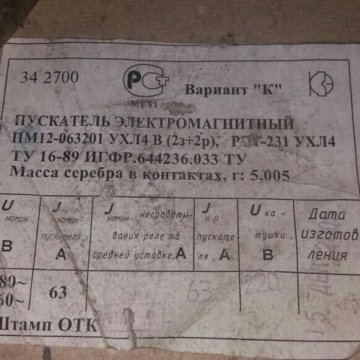 34 2700
РСТ
МТ 81
Вариант "К"
ПУСКАТЕЛЬ ЭЛЕКТРОМАГНИТНЫЙ
ПМ12-063201 УХЛ4 В (2з+2р), -231 УХЛ4
ТУ 16-89 ИГФР.644236.033 ТУ
Масса серебра в контактах, г: 5,005
U номин. В
J номин. пускателя А
J номин. несрабатывания реле на средней уставке, А
J н.р. пускателя, А
U катушки, В
Дата изготовления
80~
60~
63
63
220
Штамп ОТК